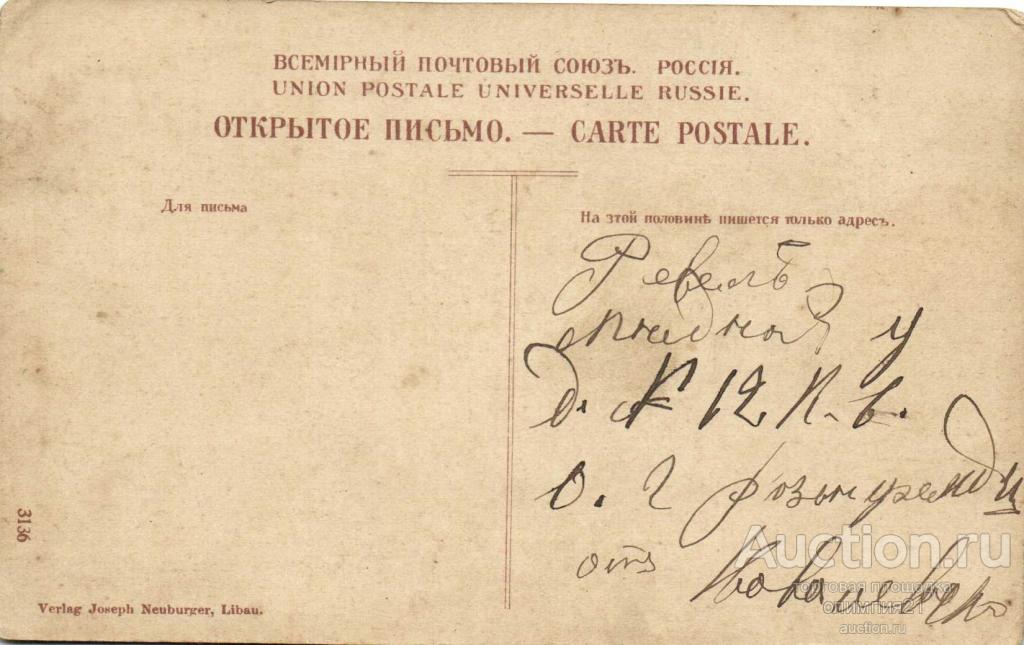 ВСЕМІРНЫЙ ПОЧТОВЫЙ СОЮЗЪ. РОССІЯ.
UNION POSTALE UNIVERSELLE RUSSIE.
ОТКРЫТОЕ ПИСЬМО. — CARTE POSTALE.
Для письма
На этой половинѣ пишется только адресъ.
Ревель
у
д. № 12 К. в.
о. г
отъ
3136
Verlag Joseph Neuburger, Libau.
Auction.ru
торговая площадка
олимпия21
auction.ru